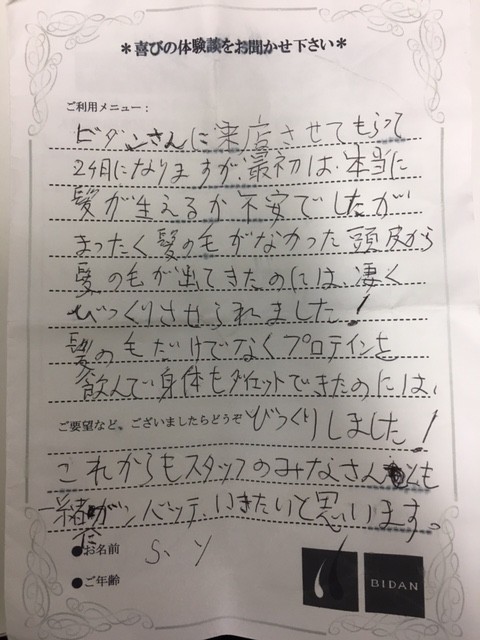 *喜びの体験談をお聞かせ下さい*
ご利用メニュー：
ビダンさんに来店させてもらって
2ヶ月になりますが最初は、本当に
髪が生えるか不安でしたが
まったく髪の毛がなかった頭皮から
髪の毛が出てきたのには、凄く
びっくりさせられました!
髪の毛だけでなくプロテインを
飲んで身体もダイエットできたのには、
ご要望など、ございましたらどうぞ びっくりしました!
これからもスタッフのみなさんとも
一緒にガンバッテ、いきたいと思います。
●お名前 S、Y
●ご年齢
BIDAN